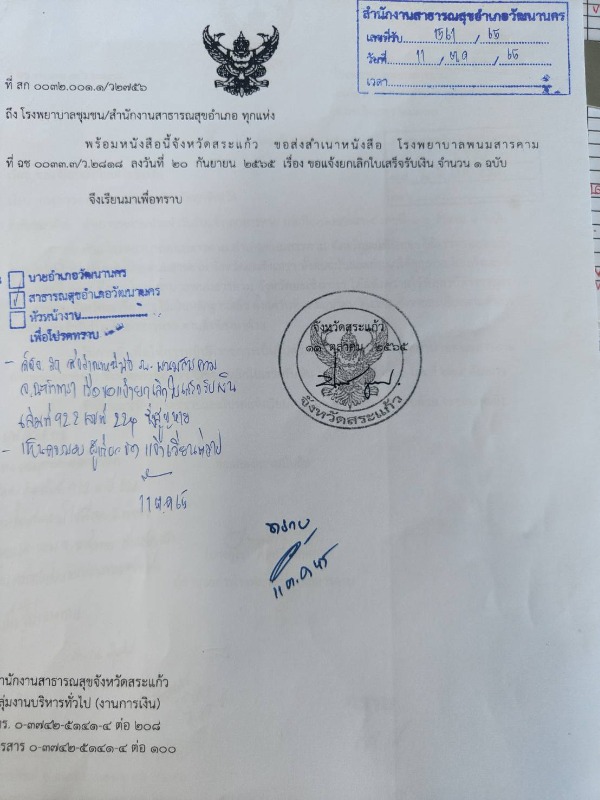 สำนักงานสาธารณสุขอำเภอวัฒนานคร
เลขที่รับ 1561 / 65
วันที่ 11 / ต.ค / 65
เวลา
ที่ สก ๐๐๓๒.๐๐๑.๑/ว๒๗๕๖
ถึง โรงพยาบาลชุมชน/สำนักงานสาธารณสุขอำเภอ ทุกแห่ง
พร้อมหนังสือนี้จังหวัดสระแก้ว ขอส่งสำเนาหนังสือ โรงพยาบาลพนมสารคาม
ที่ ฉช ๐๐๓๓.๓/ว.๒๘๑๘ ลงวันที่ ๒๐ กันยายน ๒๕๖๕ เรื่อง ขอแจ้งยกเลิกใบเสร็จรับเงิน จำนวน ๑ ฉบับ
จึงเรียนมาเพื่อทราบ
นายอำเภอวัฒนานคร
สาธารณสุขอำเภอวัฒนานคร
หัวหน้างาน
เพื่อโปรดทราบ
จังหวัดสระแก้ว
๑๑ ตุลาคม ๒๕๖๕
จังหวัดสระแก้ว
เรื่อง ขอแจ้งยกเลิกใบเสร็จรับเงิน
เล่มที่ 922 เลขที่ ซึ่งสูญหาย
- เห็นควรมอบ แจ้งเวียนต่อไป
11 ต.ค 65
ทราบ
11 ต.ค 65
สำนักงานสาธารณสุขจังหวัดสระแก้ว
กลุ่มงานบริหารทั่วไป (งานการเงิน)
โทร. ๐-๓๗๔๒-๕๑๔๑-๔ ต่อ ๒๐๘
โทรสาร ๐-๓๗๔๒-๕๑๔๑-๔ ต่อ ๑๐๐